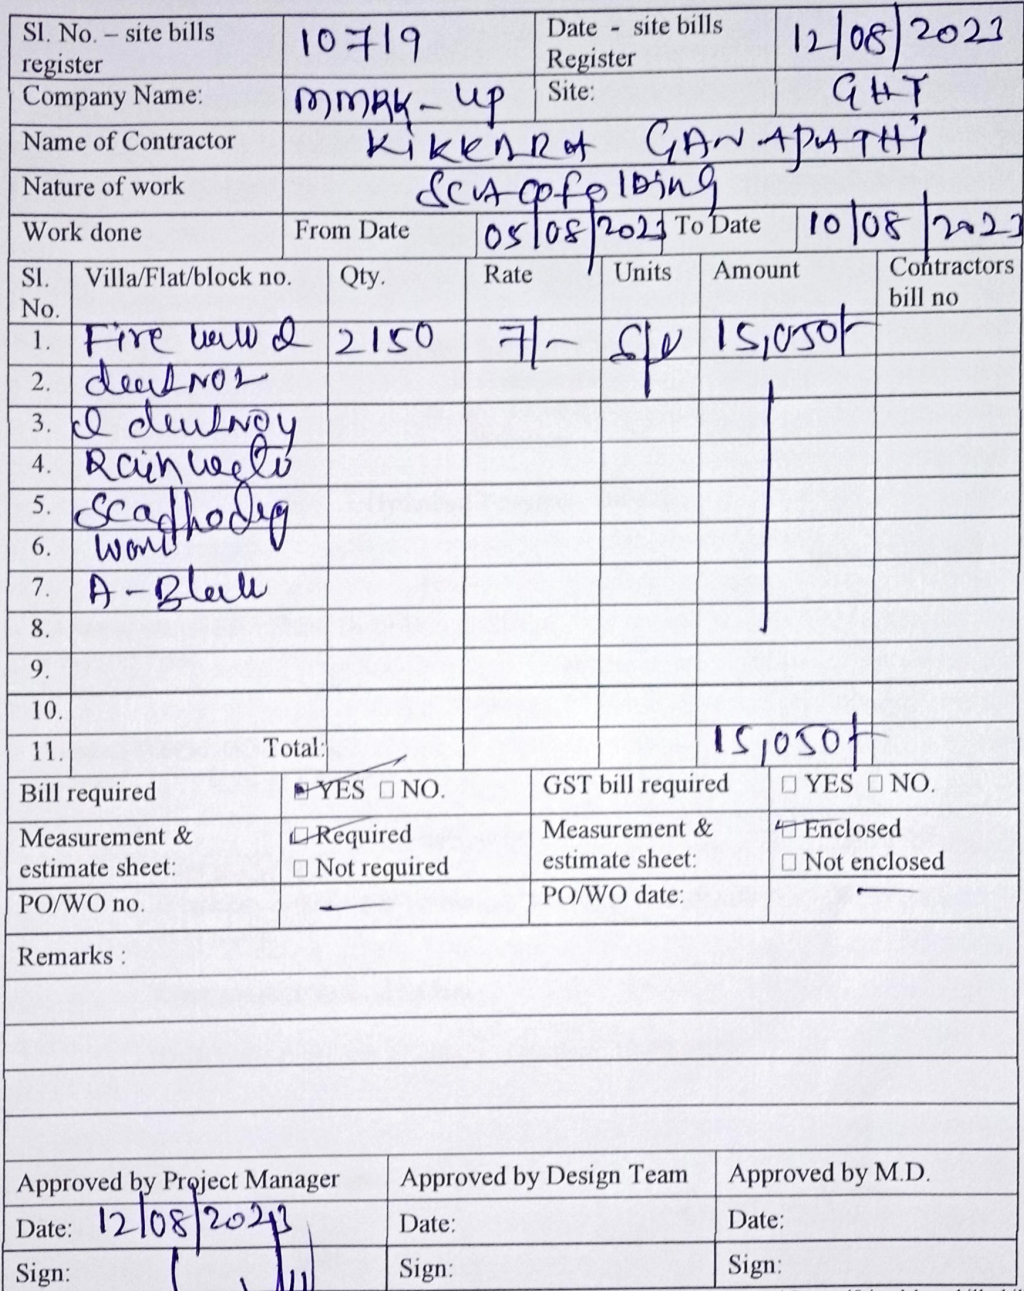 Sl. No. – site bills register 10719 Date - site bills Register 12/08/2023
Company Name: MMRK-UP Site: GHT
Name of Contractor KIKKARA GANAPATHI
Nature of work
Work done From Date 05/08/2023 To Date 10/08/2023
Sl. No. Villa/Flat/block no. Qty. Rate Units Amount Contractors bill no
1. Fire 2150 7/- 15,050/-
2.
3.
4. Rain
5.
6.
7. A-
8.
9.
10.
11. Total: 15,050/-
Bill required YES NO. GST bill required YES NO.
Measurement & estimate sheet: Required Not required Measurement & estimate sheet: Enclosed Not enclosed
PO/WO no. – PO/WO date: –
Remarks :
Approved by Project Manager Approved by Design Team Approved by M.D.
Date: 12/08/2023 Date: Date:
Sign: Sign: Sign: